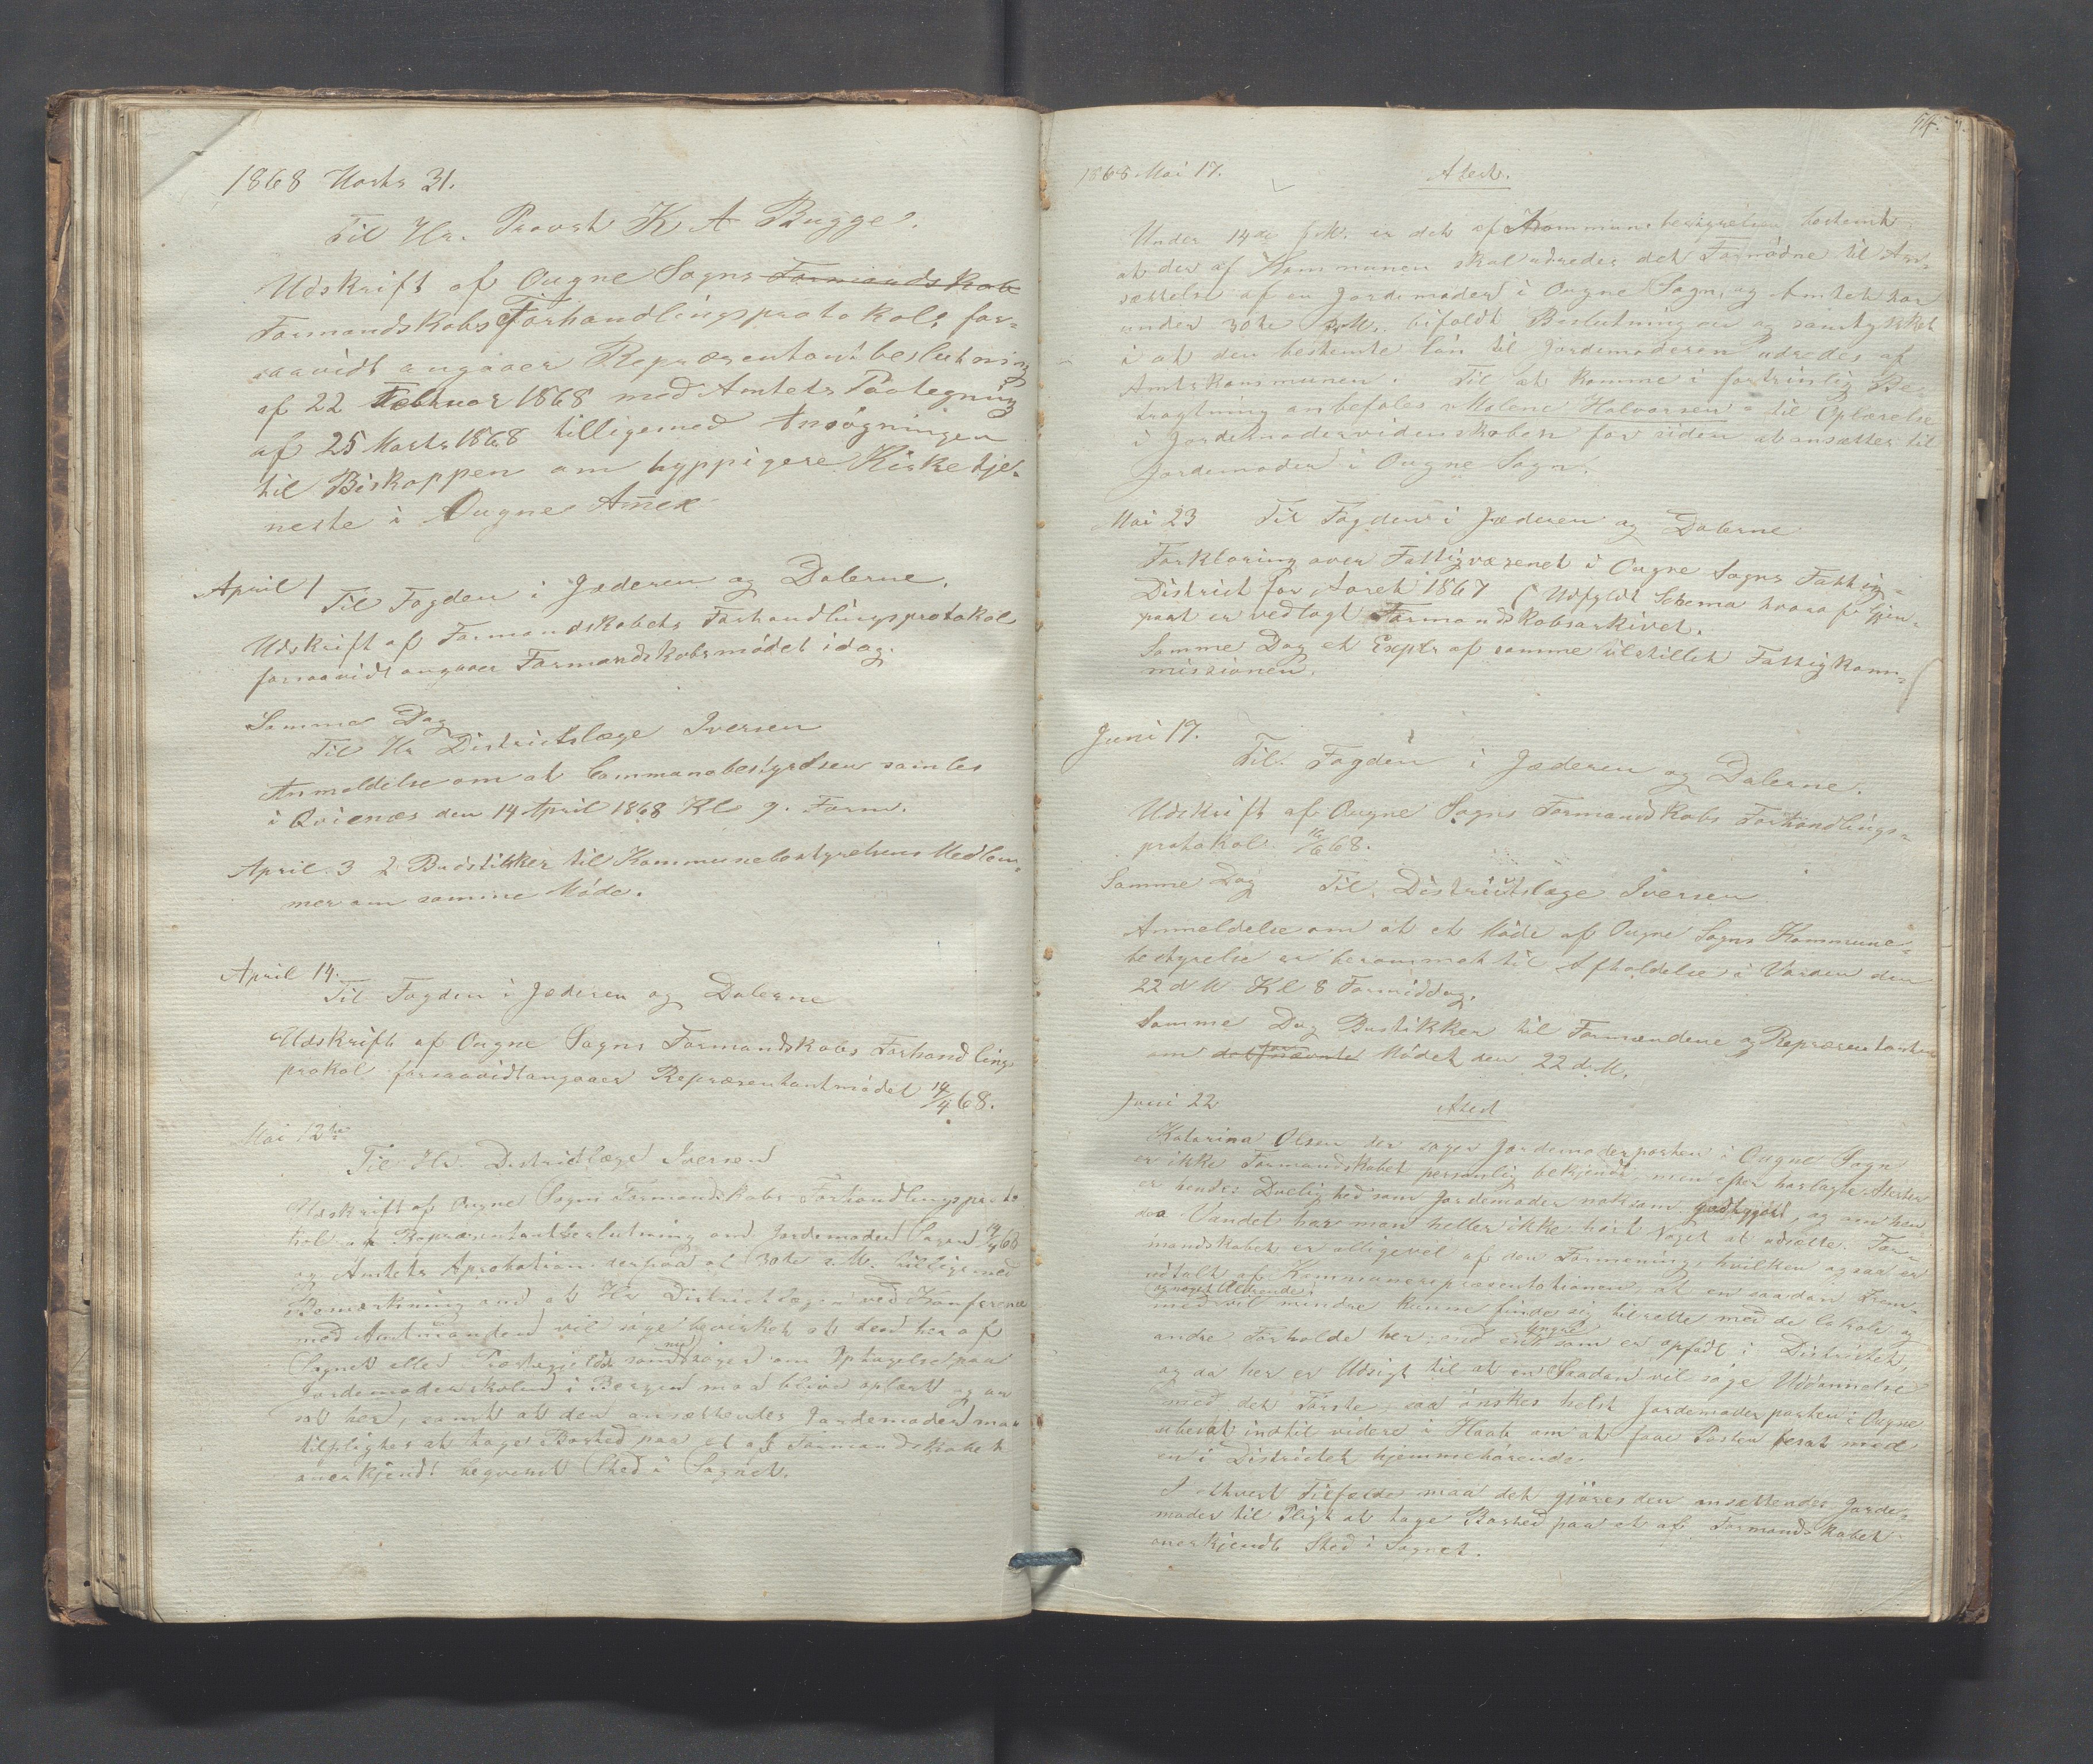 1868 Marts 31.
Til Hr. Provst K A Bugge.
Udskrift af Ougne Sogns Formandskab
Formandskabs Forhandlingsprotokol, for=
saavidt angaaer Repræsentantbeslutning
af 22 Februar 1868 med Amtets Paategning
af 25 Marts 1868 tilligemed Ansøgningen
til Biskoppen om hyppigere Kirketje=
neste i Ougne Annex
April 1
Til Fogden i Jæderen og Dalerne.
Udskrift af Formandskabets Forhandlingsprotokol
forsaavidt angaaer Formandskabsmødet idag.
Samme Dag
Til Hr Districtslæge Iversen
Anmeldelse om at Communebestyrelsen samles
i Qvienæs den 14 April 1868 Kl 9. Form.
April 3 2 Budstikker til Kommunebestyrelsens Medlem=
mer om samme Møde.
April 14.
Til Fogden i Jæderen og Dalerne
Udskrift af Ougne Sogns Formandskabs Forhandlings
prokol forsaavidtangaaer Repræsentantmødet 14/4 68.
Mai 12te
Til Hr. Districtlæge Iversen
Udskrift af Ougne Sogns Formandskabs Forhandlingsproto
kol af Repræsentantbeslutning om Jordemoder Sagen 14/4 68
og Amtets Aprobation derpaa af 30te s.M. tilligemed
Bemærkning om at Hr Districtlægen ved Konferene
med Amtmanden vil søge bevirket at den her af
Sognet eller Præstegjeldet som nu søger om Optagelse paa
Jordemoderskolen i Bergen maa blive oplært og an
sat her, samt at den ansættendes Jordemoder maa
tilpligtes at tage Bosted paa et af Formandskabet
anerkjendt beqvemt Sted i Sognet.
54.
1868 Mai 17. Atest.
Under 14de f.M. er det af Kommunebestyrelsen bestemt
at der af Kommunen skal udredes det Fornødne til An=
sættelse af en Jordemoder i Ougne Sogn, og Amtet har
under 30te s.M. bifaldt Beslutningen og samtykket
i at den bestemte løn til Jordemoderen udredes af
Amtskommunen. Til at komme i fortrinlig Be=
tragtning anbefales Malene Halvorsen til Oplærelse
i Jordemodervidenskaben for siden at ansættes til
Jordemoder i Ougne Sogn.
Mai 23 Til Fogden i Jæderen og Dalerne
Forklaring over Fattigvæsenet i Ougne Sogns Fattig=
District for Aaret 1867 (Udfyldt Schema hvoraf Gjen=
part er vedlagt Formandskabsarkivet.
Samme Dag et Exptr af samme tilstillet Fattigkom=
missionen.
Juni 17.
Til Fogden i Jæderen og Dalerne.
Udskrift af Ougne Sogns Formandskabs Forhandlings=
protokol 16/6 68.
Samme Dag Til Districtslæge Iversen
Anmeldelse om at et Møde af Ougne Sogns Kommune=
bestyrelse er berammet til Afholdelse i Varden den
22 d M. Kl 8 Formiddag.
Samme Dag Bustikker til Formændene og Repræsentanten
om det fornævnte Mødet den 22 d.M.
Juni 22 Atest
Katarina Olsen der søger Jordemoderposten i Ougne Sogn
er ikke Formandskabet personlig bekjendt, men efter haslagte Atester
er hendes Duelighed som Jordemoder noksom godtgjort, og om hen=
des Vandel har man heller ikke hørt Noget at udsætte. For=
mandskabet er alligevel af den Formening, hvilken ogsaa er
udtalt af Kommunerepræsentationen at en saadan Frem=
og noget Aldrende
med vil mindre kunne finde sig tilrette med de lokale og
andre Forholde her end en yngre som er opfødt i Districtet,
og da her er Udsigt til at en Saadan vil søge Uddannelse
med det Første, saa ønskes helst Jordemoderposten i Ougne
ubesat indtil videre i Haab om at faae Posten besat med
en i Districtet hjemmehørende
I ethvert Tilfælde maa det gjøres den ansættendes Jorde=
moder til Pligt at tage Bosted paa et af Formandskabet
anerkjendt Sted i Sognet.